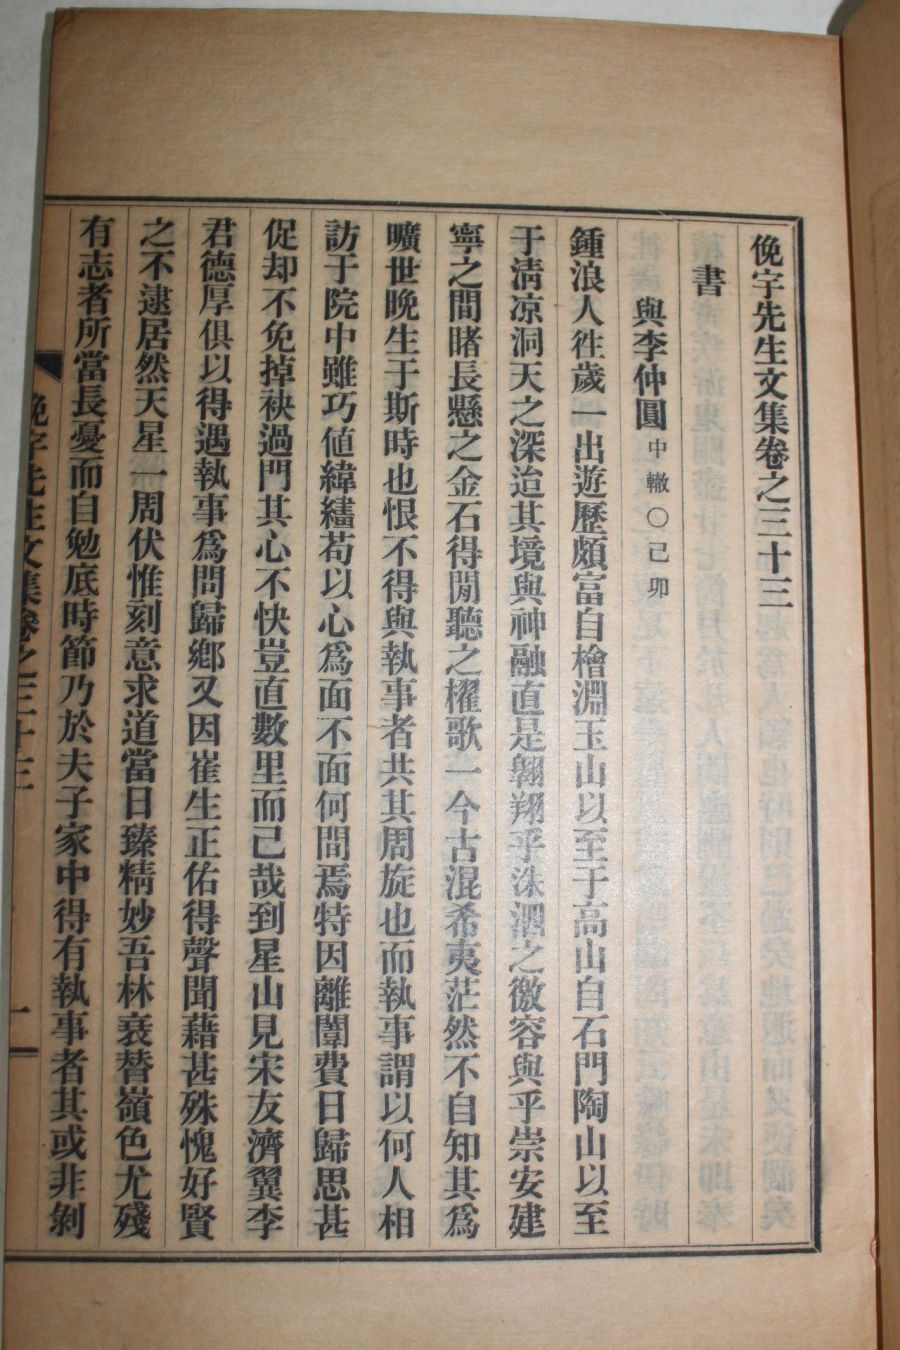 俛宇先生文集卷之三十三
書
與李仲圓中轍○己卯
鍾浪人徃歲一出遊歷頗富自檜淵玉山以至于高山自石門陶山以至
于淸凉洞天之深造其境與神融直是翱翔乎洙泗之徽容與乎崇安建
寧之間睹長懸之金石得閒聽之櫂歌一今古混希夷茫然不自知其爲
曠世晩生于斯時也恨不得與執事者共其周旋也而執事謂以何人相
訪于院中雖巧値緯繣苟以心爲面不面何間焉特因離闈費日歸思甚
促却不免掉袂過門其心不快豈直數里而已哉到星山見宋友濟翼李
君德厚俱以得遇執事爲問歸鄕又因崔生正佑得聲聞藉甚殊愧好賢
之不逮居然天星一周伏惟刻意求道當日臻精妙吾林衰替嶺色尤殘
有志者所當長憂而自勉底時節乃於夫子家中得有執事者其或非剝
俛宇先生文集卷之三十三 一